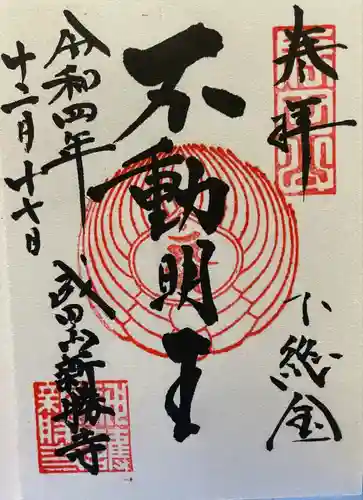 奉拝
下総国
不動明王
成田山新勝寺
令和四年
十二月十七日